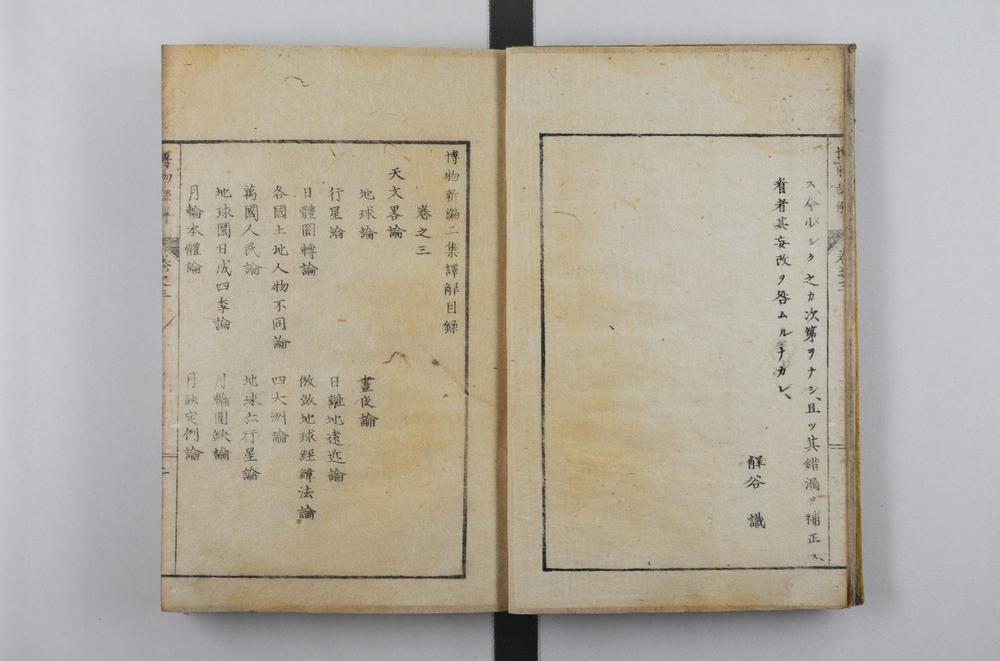 ス今少シク之カ次第ヲナシ、且ツ其錯漏ヲ補正ス、
看者其妄改ヲ咎ムルナカレ、
解谷 識
博物新編二集譯解目録
卷之三
天文畧論
地球論
晝夜論
行星論
日離地遠近論
日體圜轉論
倣做地球經緯法論
各國土地人物不同論
四大洲論
萬國人民論
地球亦行星論
地球圜日成四季論
月輪圓缺論
月輪本體論
月蝕定例論